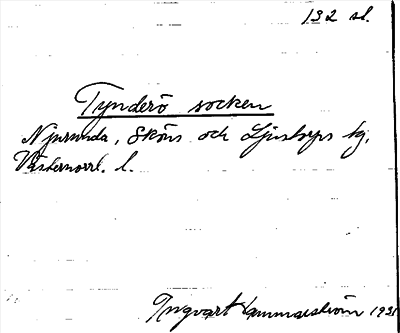 132 sl.
Tynderö socken
Njurunda, Sköns och Ljustorps tg,
Västernorrl. l.
Ingvart Hammarström 1931